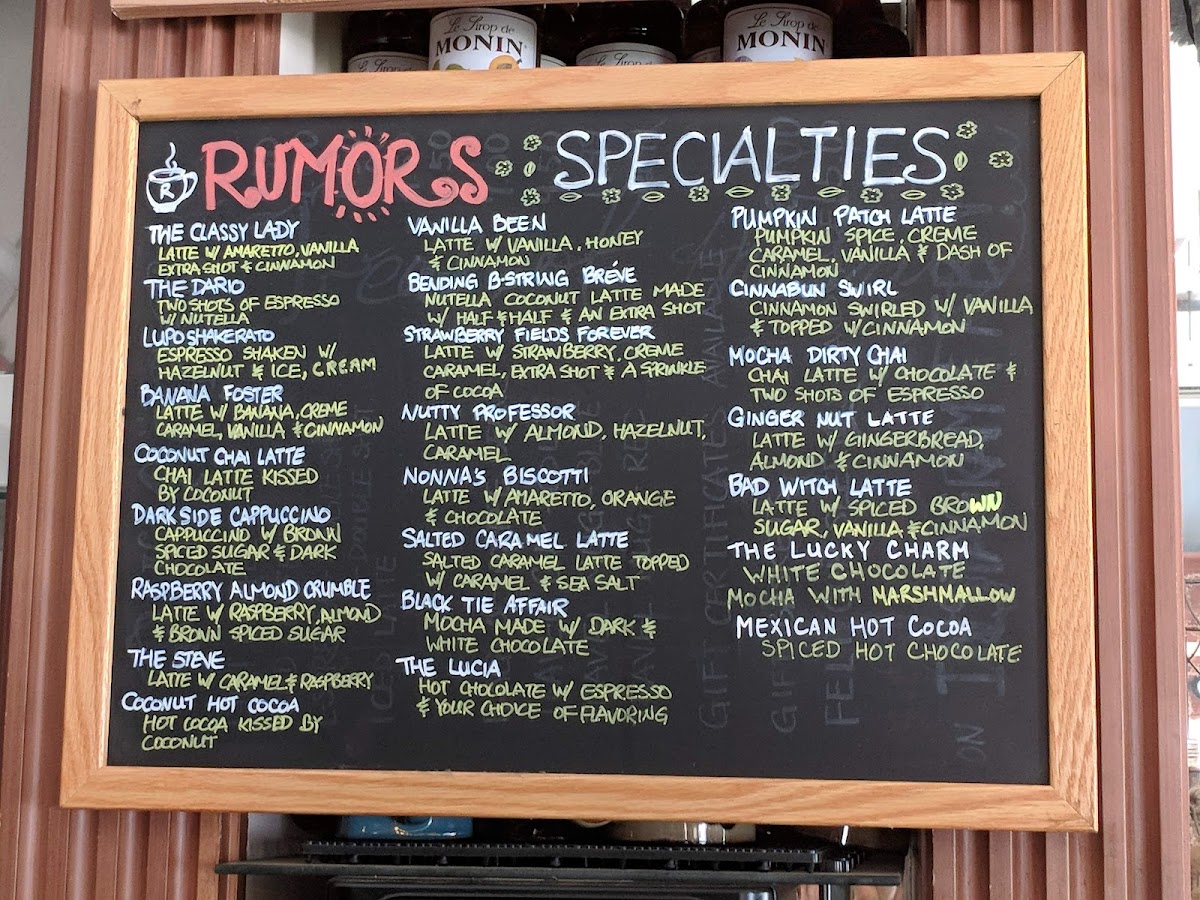 Le Sirop de
MONIN
Le Sirop de
MONIN
Le Sirop de
Le Sirop de
R
RUMORS SPECIALTIES
THE CLASSY LADY
LATTE W/ AMARETTO, VANILLA
EXTRA SHOT & CINNAMON
THE DARIO
TWO SHOTS OF ESPRESSO
W/ NUTELLA
LUPO SHAKERATO
ESPRESSO SHAKEN W/
HAZELNUT & ICE, CREAM
BANANA FOSTER
LATTE W/ BANANA, CREME
CARAMEL, VANILLA & CINNAMON
COCONUT CHAI LATTE
CHAI LATTE KISSED
BY COCONUT
DARK SIDE CAPPUCCINO
CAPPUCCINO W/ BROWN
SPICED SUGAR & DARK
CHOCOLATE
RASPBERRY ALMOND CRUMBLE
LATTE W/ RASPBERRY, ALMOND
& BROWN SPICED SUGAR
THE STEVE
LATTE W/ CARAMEL & RASPBERRY
COCONUT HOT COCOA
HOT COCOA KISSED BY
COCONUT
VANILLA BEEN
LATTE W/ VANILLA, HONEY
& CINNAMON
BENDING B-STRING BRÉVE
NUTELLA COCONUT LATTE MADE
W/ HALF & HALF & AN EXTRA SHOT
STRAWBERRY FIELDS FOREVER
LATTE W/ STRAWBERRY, CREME
CARAMEL, EXTRA SHOT & A SPRINKLE
OF COCOA
NUTTY PROFESSOR
LATTE W/ ALMOND, HAZELNUT,
CARAMEL
NONNA'S BISCOTTI
LATTE W/ AMARETTO, ORANGE
& CHOCOLATE
SALTED CARAMEL LATTE
SALTED CARAMEL LATTE TOPPED
W/ CARAMEL & SEA SALT
BLACK TIE AFFAIR
MOCHA MADE W/ DARK &
WHITE CHOCOLATE
THE LUCIA
HOT CHOCOLATE W/ ESPRESSO
& YOUR CHOICE OF FLAVORING
PUMPKIN PATCH LATTE
PUMPKIN SPICE, CREME
CARAMEL, VANILLA & DASH OF
CINNAMON
CINNABUN SWIRL
CINNAMON SWIRLED W/ VANILLA
& TOPPED W/ CINNAMON
MOCHA DIRTY CHAI
CHAI LATTE W/ CHOCOLATE &
TWO SHOTS OF ESPRESSO
GINGER NUT LATTE
LATTE W/ GINGERBREAD,
ALMOND & CINNAMON
BAD WITCH LATTE
LATTE W/ SPICED BROWN
SUGAR, VANILLA & CINNAMON
THE LUCKY CHARM
WHITE CHOCOLATE
MOCHA WITH MARSHMALLOW
MEXICAN HOT COCOA
SPICED HOT CHOCOLATE
GIFT CERTIFICATES AVAILABLE